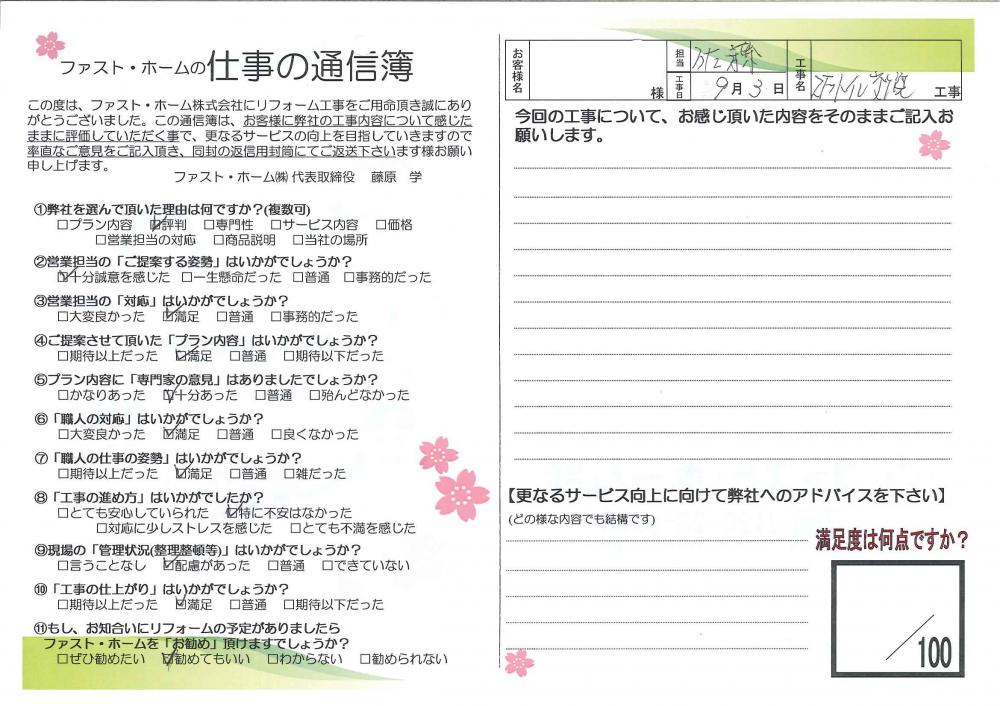 ファスト・ホームの仕事の通信簿
この度は、ファスト・ホーム株式会社にリフォーム工事をご用命頂き誠にあり
がとうございました。この通信簿は、お客様に弊社の工事内容について感じた
ままに評価していただく事で、更なるサービスの向上を目指していきますので
率直なご意見をご記入頂き、同封の返信用封筒にてご返送下さいます様お願い
申し上げます。
ファスト・ホーム㈱ 代表取締役 藤原 学
①弊社を選んで頂いた理由は何ですか?(複数可)
□プラン内容 ☑評判 □専門性 □サービス内容 □価格
□営業担当の対応 □商品説明 □当社の場所
②営業担当の「ご提案する姿勢」はいかがでしょうか?
☑十分誠意を感じた □一生懸命だった □普通 □事務的だった
③営業担当の「対応」はいかがでしょうか?
□大変良かった ☑満足 □普通 □事務的だった
④ご提案させて頂いた「プラン内容」はいかがでしょうか?
□期待以上だった ☑満足 □普通 □期待以下だった
⑤プラン内容に「専門家の意見」はありましたでしょうか?
□かなりあった ☑十分あった □普通 □殆んどなかった
⑥「職人の対応」はいかがでしょうか?
□大変良かった ☑満足 □普通 □良くなかった
⑦「職人の仕事の姿勢」はいかがでしょうか?
□期待以上だった ☑満足 □普通 □雑だった
⑧「工事の進め方」はいかがでしたか?
□とても安心していられた ☑特に不安はなかった
□対応に少しストレスを感じた □とても不満を感じた
⑨現場の「管理状況(整理整頓等)」はいかがでしょうか?
□言うことなし ☑配慮があった □普通 □できていない
⑩「工事の仕上がり」はいかがでしょうか?
□期待以上だった ☑満足 □普通 □期待以下だった
⑪もし、お知合いにリフォームの予定がありましたら
ファスト・ホームを「お勧め」頂けますでしょうか?
□ぜひ勧めたい ☑勧めてもいい □わからない □勧められない
お客様名 様 担当 佐藤 工事日 9月3日 工事名 工事
今回の工事について、お感じ頂いた内容をそのままご記入お
願いします。
【更なるサービス向上に向けて弊社へのアドバイスを下さい】
(どの様な内容でも結構です)
満足度は何点ですか?
/100